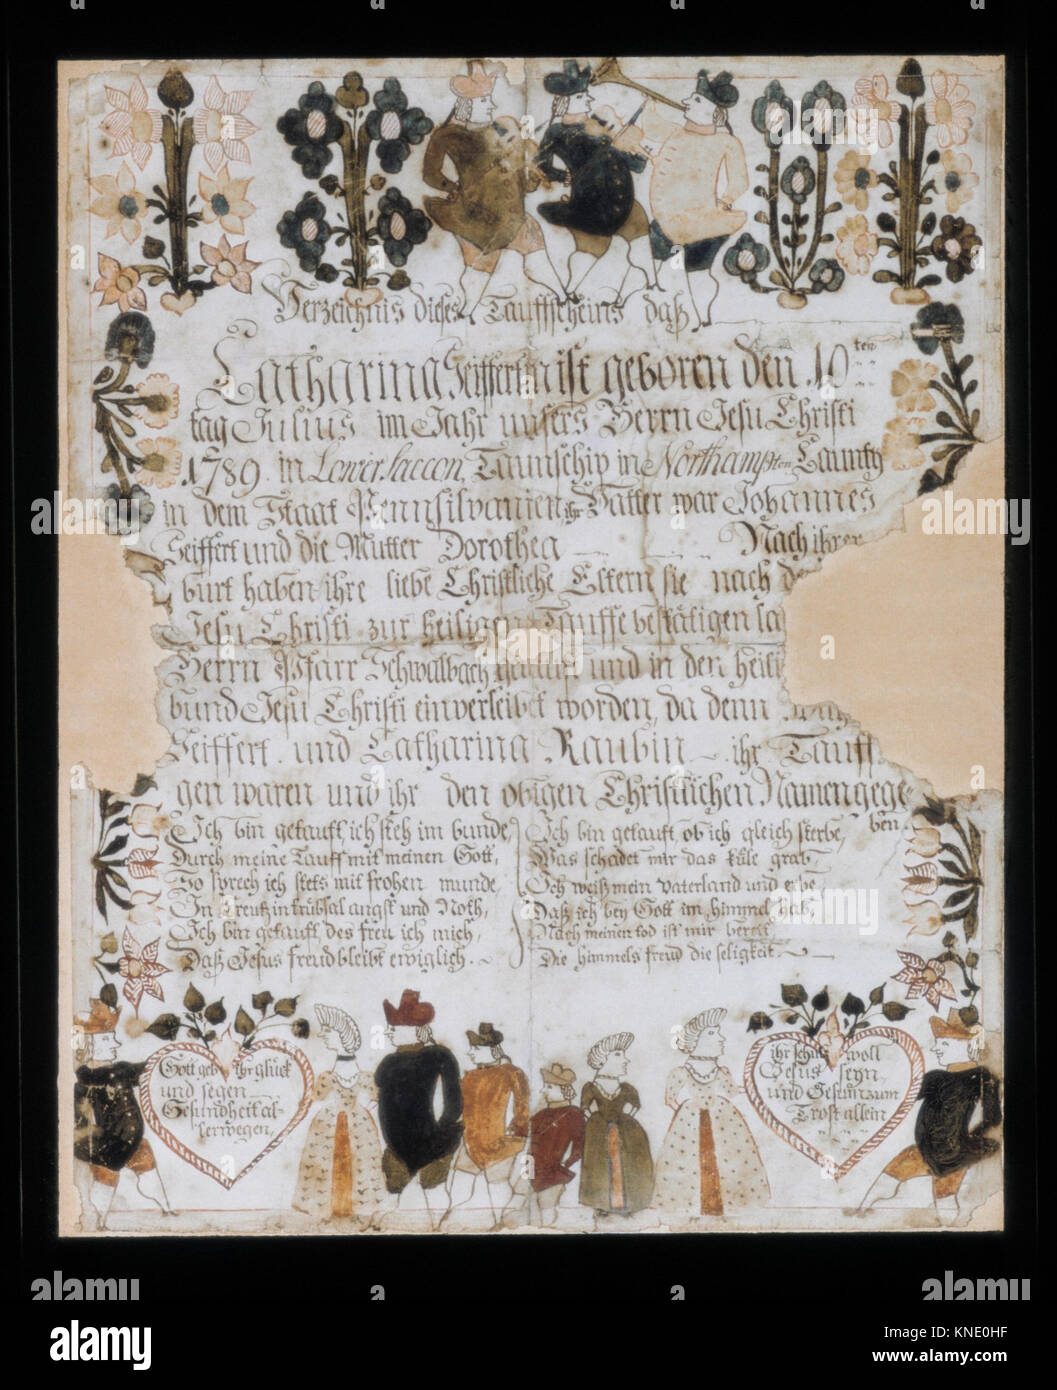 Verzeichnis dieses Tauffscheins daß
Catharina Seiffert in ist geboren den 10ten
tag Julius im Jahr unsers Herrn Jesu Christi
1789. in Lower Saccon, Taunschip in Northampton Caunty
in dem Staat Pennsilvanien, ihr Vatter war Johannes
Seiffert und die Mutter Dorothea Nach ihrer
burt haben ihre liebe Christliche Eltern sie nach
Jesu Christi zur heiligen Tauffe bestätigen
Herrn Pfarr Schwalbach getauft und in den
bund Jesu Christi einverleibet worden, da denn
Seiffert und Catharina Raubin ihr Tauff
gen waren und ihr den obigen Christlichen Namen gege-
ben.
Ich bin getauft, ich steh im bunde,
Durch meine Tauff mit meinen Gott,
So sprech ich stets mit frohen munde,
In Creutz in trübsal angst und Noth,
Ich bin getauft des freu ich mich,
Daß Jesus freud bleibt ewiglich.
Ich bin getauft, ob ich gleich sterbe,
Was schadet mir das küle grab,
Ich weiß mein vaterland und erbe
Daß ich bey Gott im himmel hab,
Nach meinen tod ist mir bereit
Die himmels freud die seligkeit.
Gott geb ihr glück
und segen
Gesundheit al-
lerwegen,
ihr schutz woll
Jesus seyn,
und Gestirn zum
Trost allein
a
alamy stock photo
KNE0HF
www.alamy.com